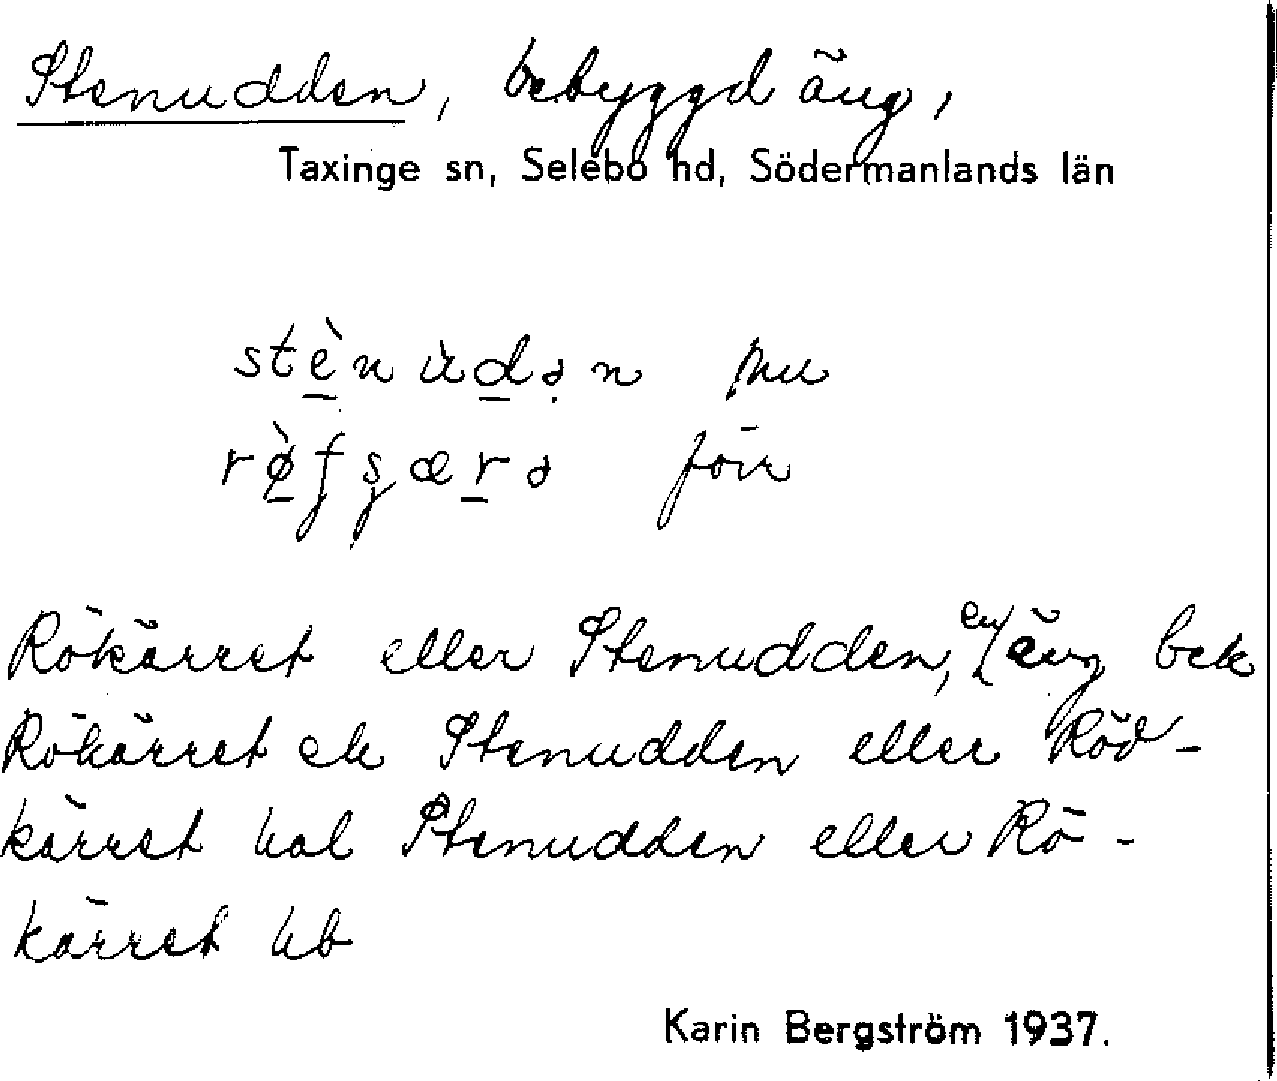 Stenudden, bebyggd äng,
Taxinge sn, Selebo hd, Södermanlands län
stènùdən nu
rø̀fsærə förr
Rökärret eller Stenudden, en äng bek
Rökärret ek Stenudden eller Röd-
kärret hal Stenudden eller Rö-
kärret hb
Karin Bergström 1937.